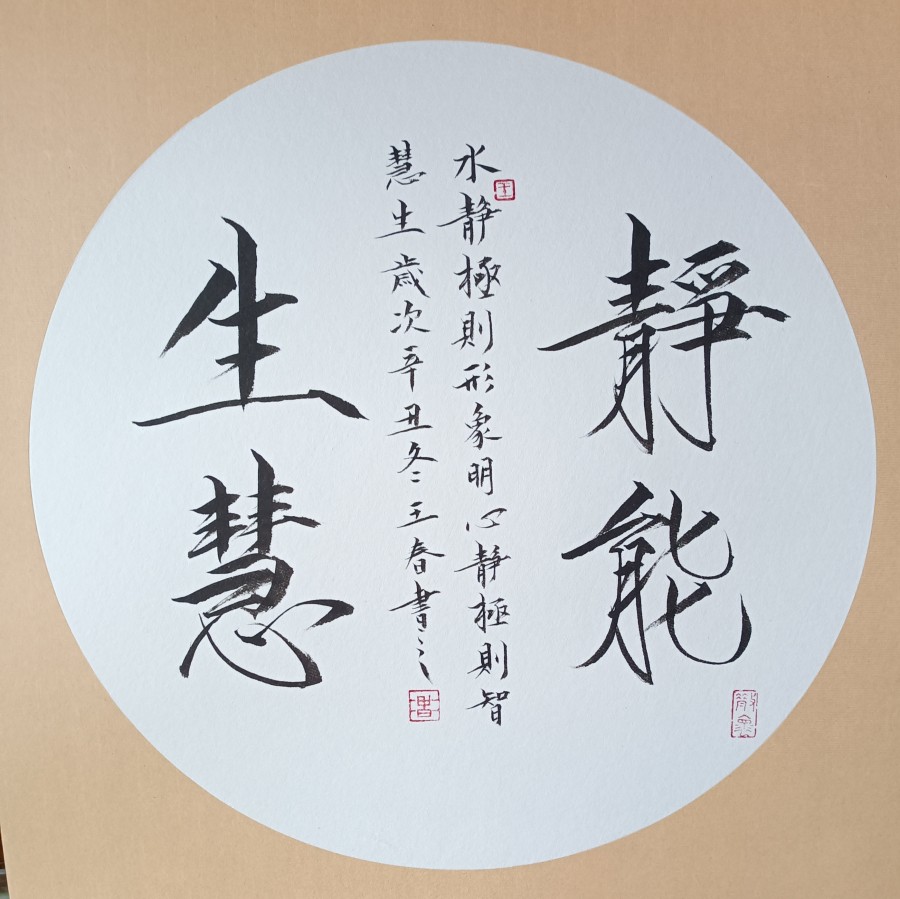 靜能
生慧
水静極則形象明心静極則智
慧生歲次辛丑冬王春書之